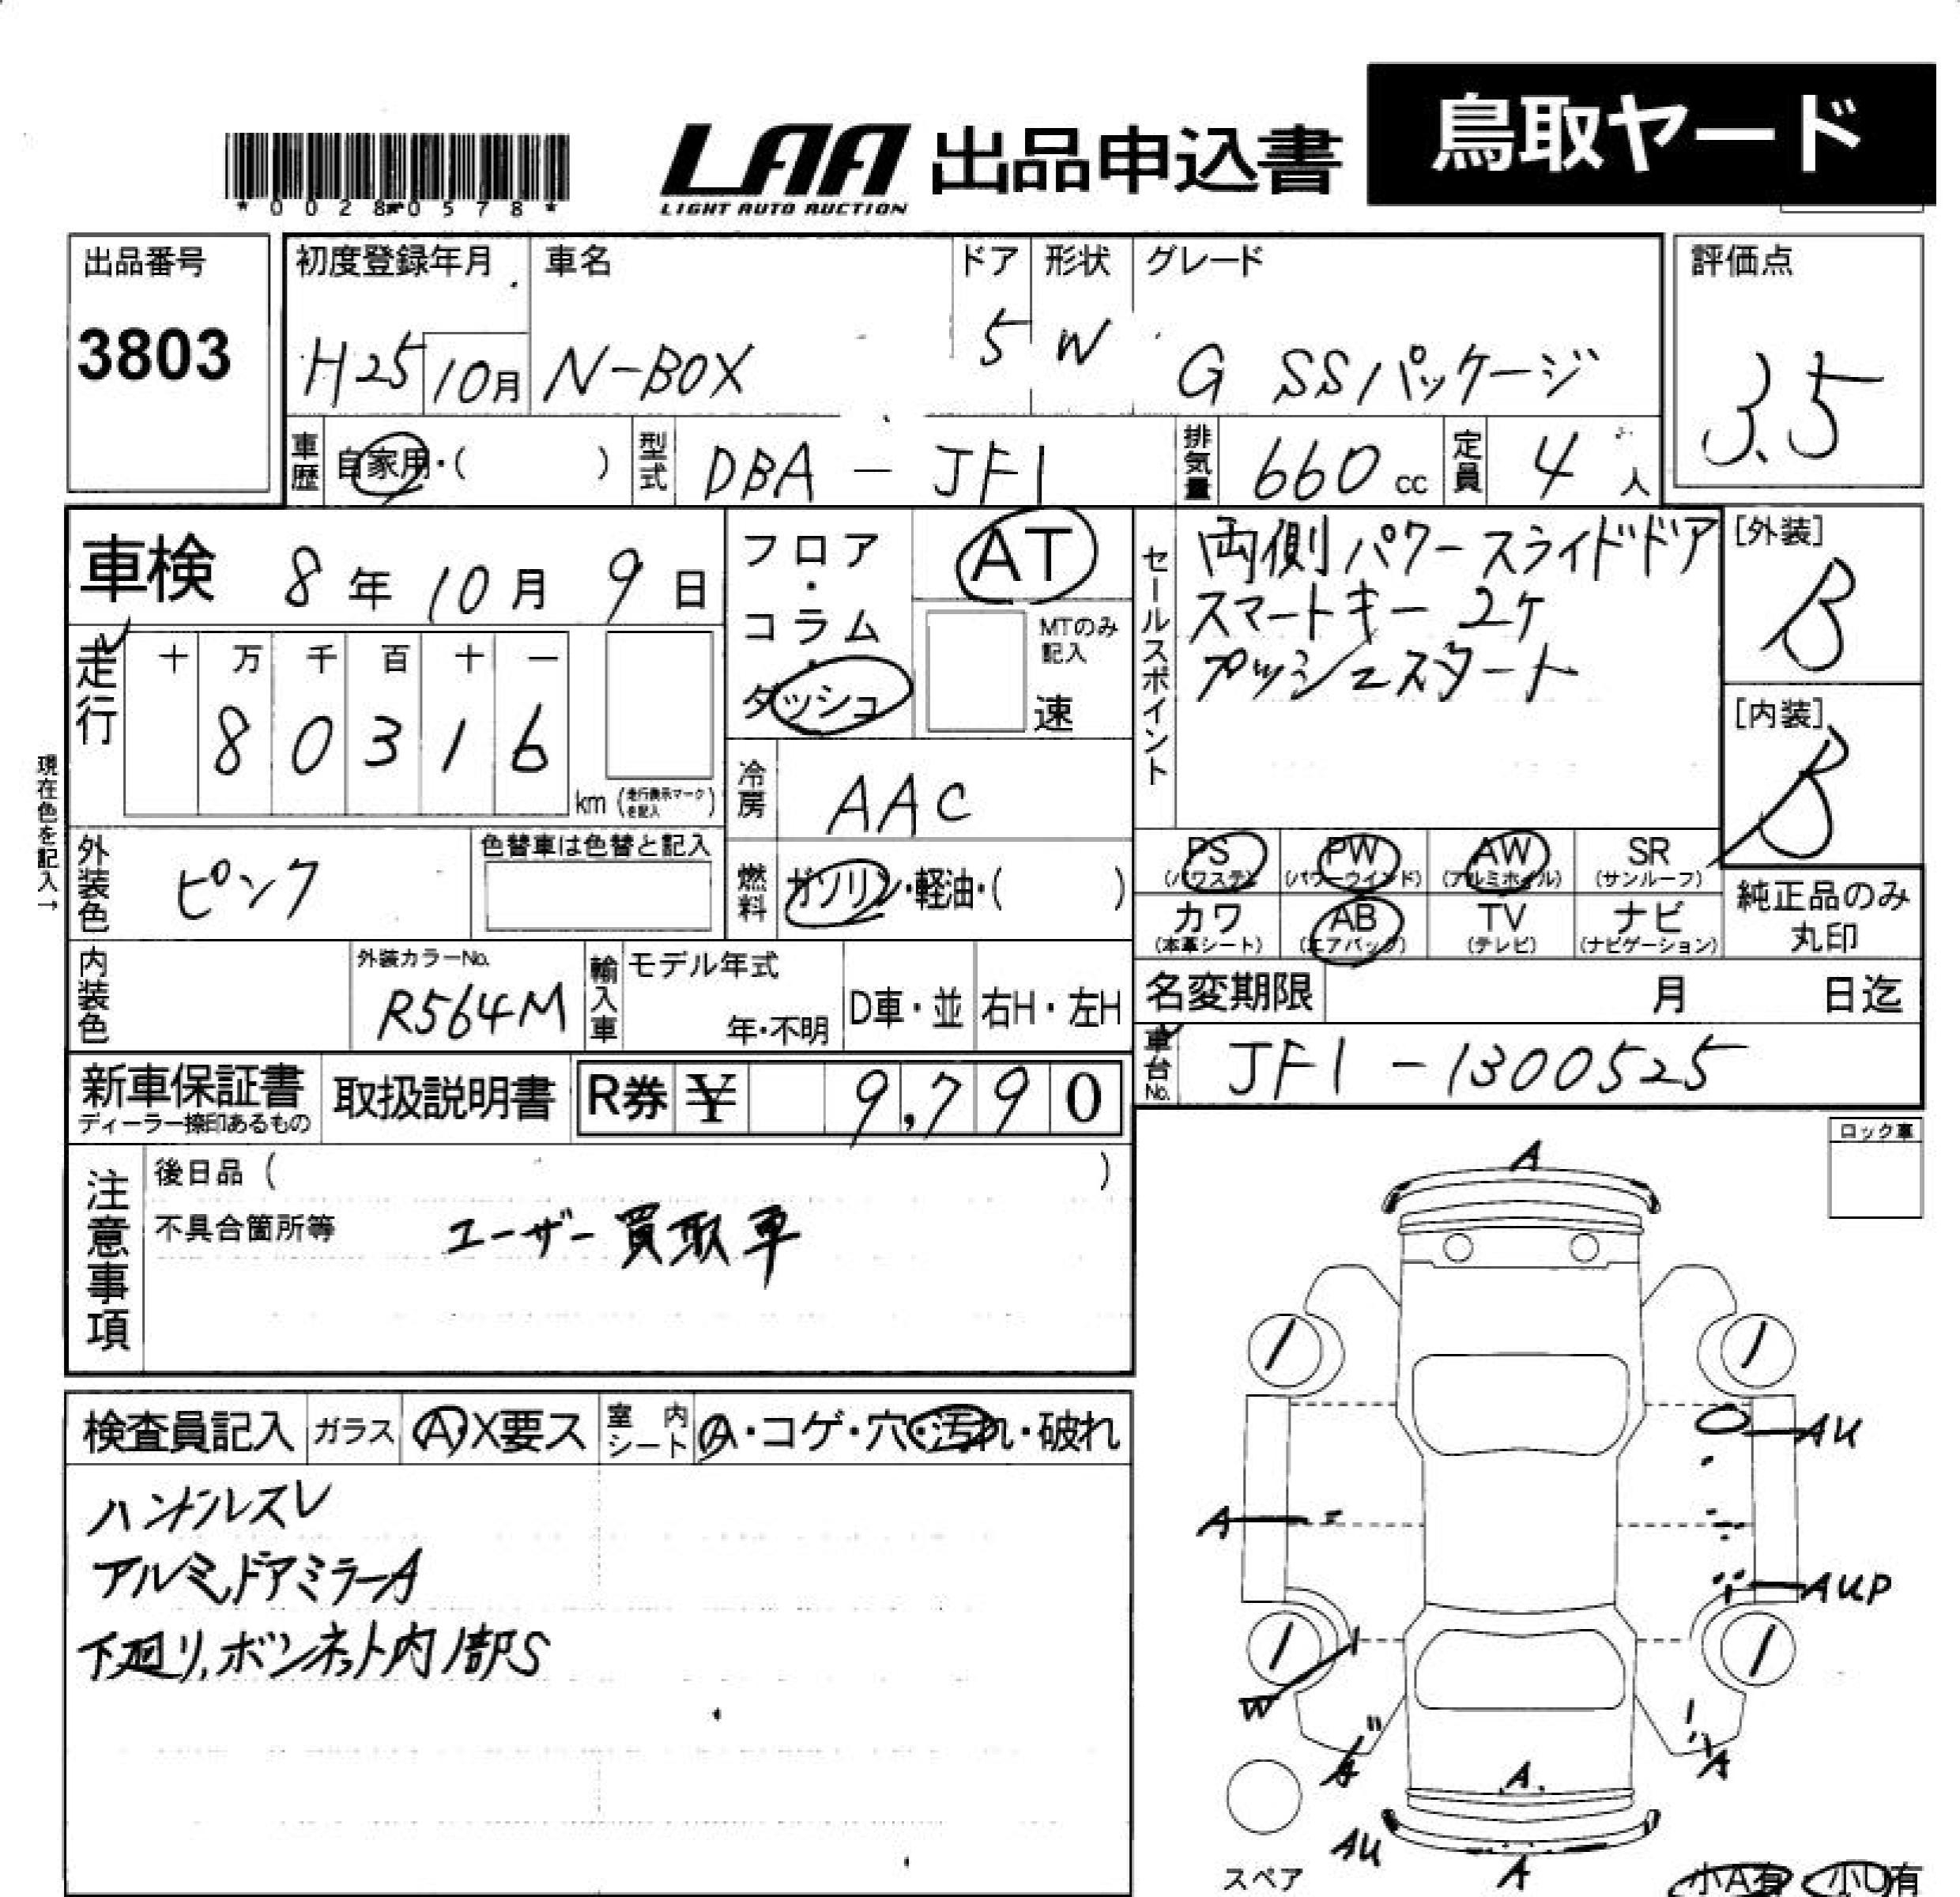 鳥取ヤード
LAA 出品申込書
LIGHT AUTO AUCTION
出品番号 初度登録年月 車名 ドア 形状 グレード 評価点
3803 H25 10月 N-BOX 5 W G SSパッケージ 3.5
車歴 自家用・( ) 型式 DBA - JF1 排気量 660 cc 定員 4 人
車検 8年 10月 9日
フロア・コラム・ダッシュ
AT
MTのみ記入
速
セールスポイント
両側パワースライドドア
スマートキー 2ケ
プッシュスタート
[外装] B
[内装] B
走行 十 万 千 百 十 一
8 0 3 1 6
km (走行表示マークを記入)
現在色を記入→
冷房 AAC
外装色 ピンク
色替車は色替と記入
燃料 ガソリン・軽油・( )
PS (パワステ) PW (パワーウインド) AW (アルミホイル) SR (サンルーフ)
カワ (本革シート) AB (エアバック) TV (テレビ) ナビ (ナビゲーション)
純正品のみ
丸印
内装色 外装カラーNo. R564M
輸入車 モデル年式 年・不明 D車・並 右H・左H
名変期限 月 日迄
車台No. JF1-1300525
新車保証書 取扱説明書 R券 ¥ 9,790
ディーラー捺印あるもの
ロック車
注意事項
後日品 ( )
不具合箇所等 ユーザー買取車
検査員記入 ガラス A X要ス 室内シート A・コゲ・穴・汚れ・破れ
ハンドルスレ
アルミ,ドアミラーA
下廻り,ボンネット内1部S
A
AU
A
AUP
W
A
A
A
AU
A
スペア
小A有 小U有